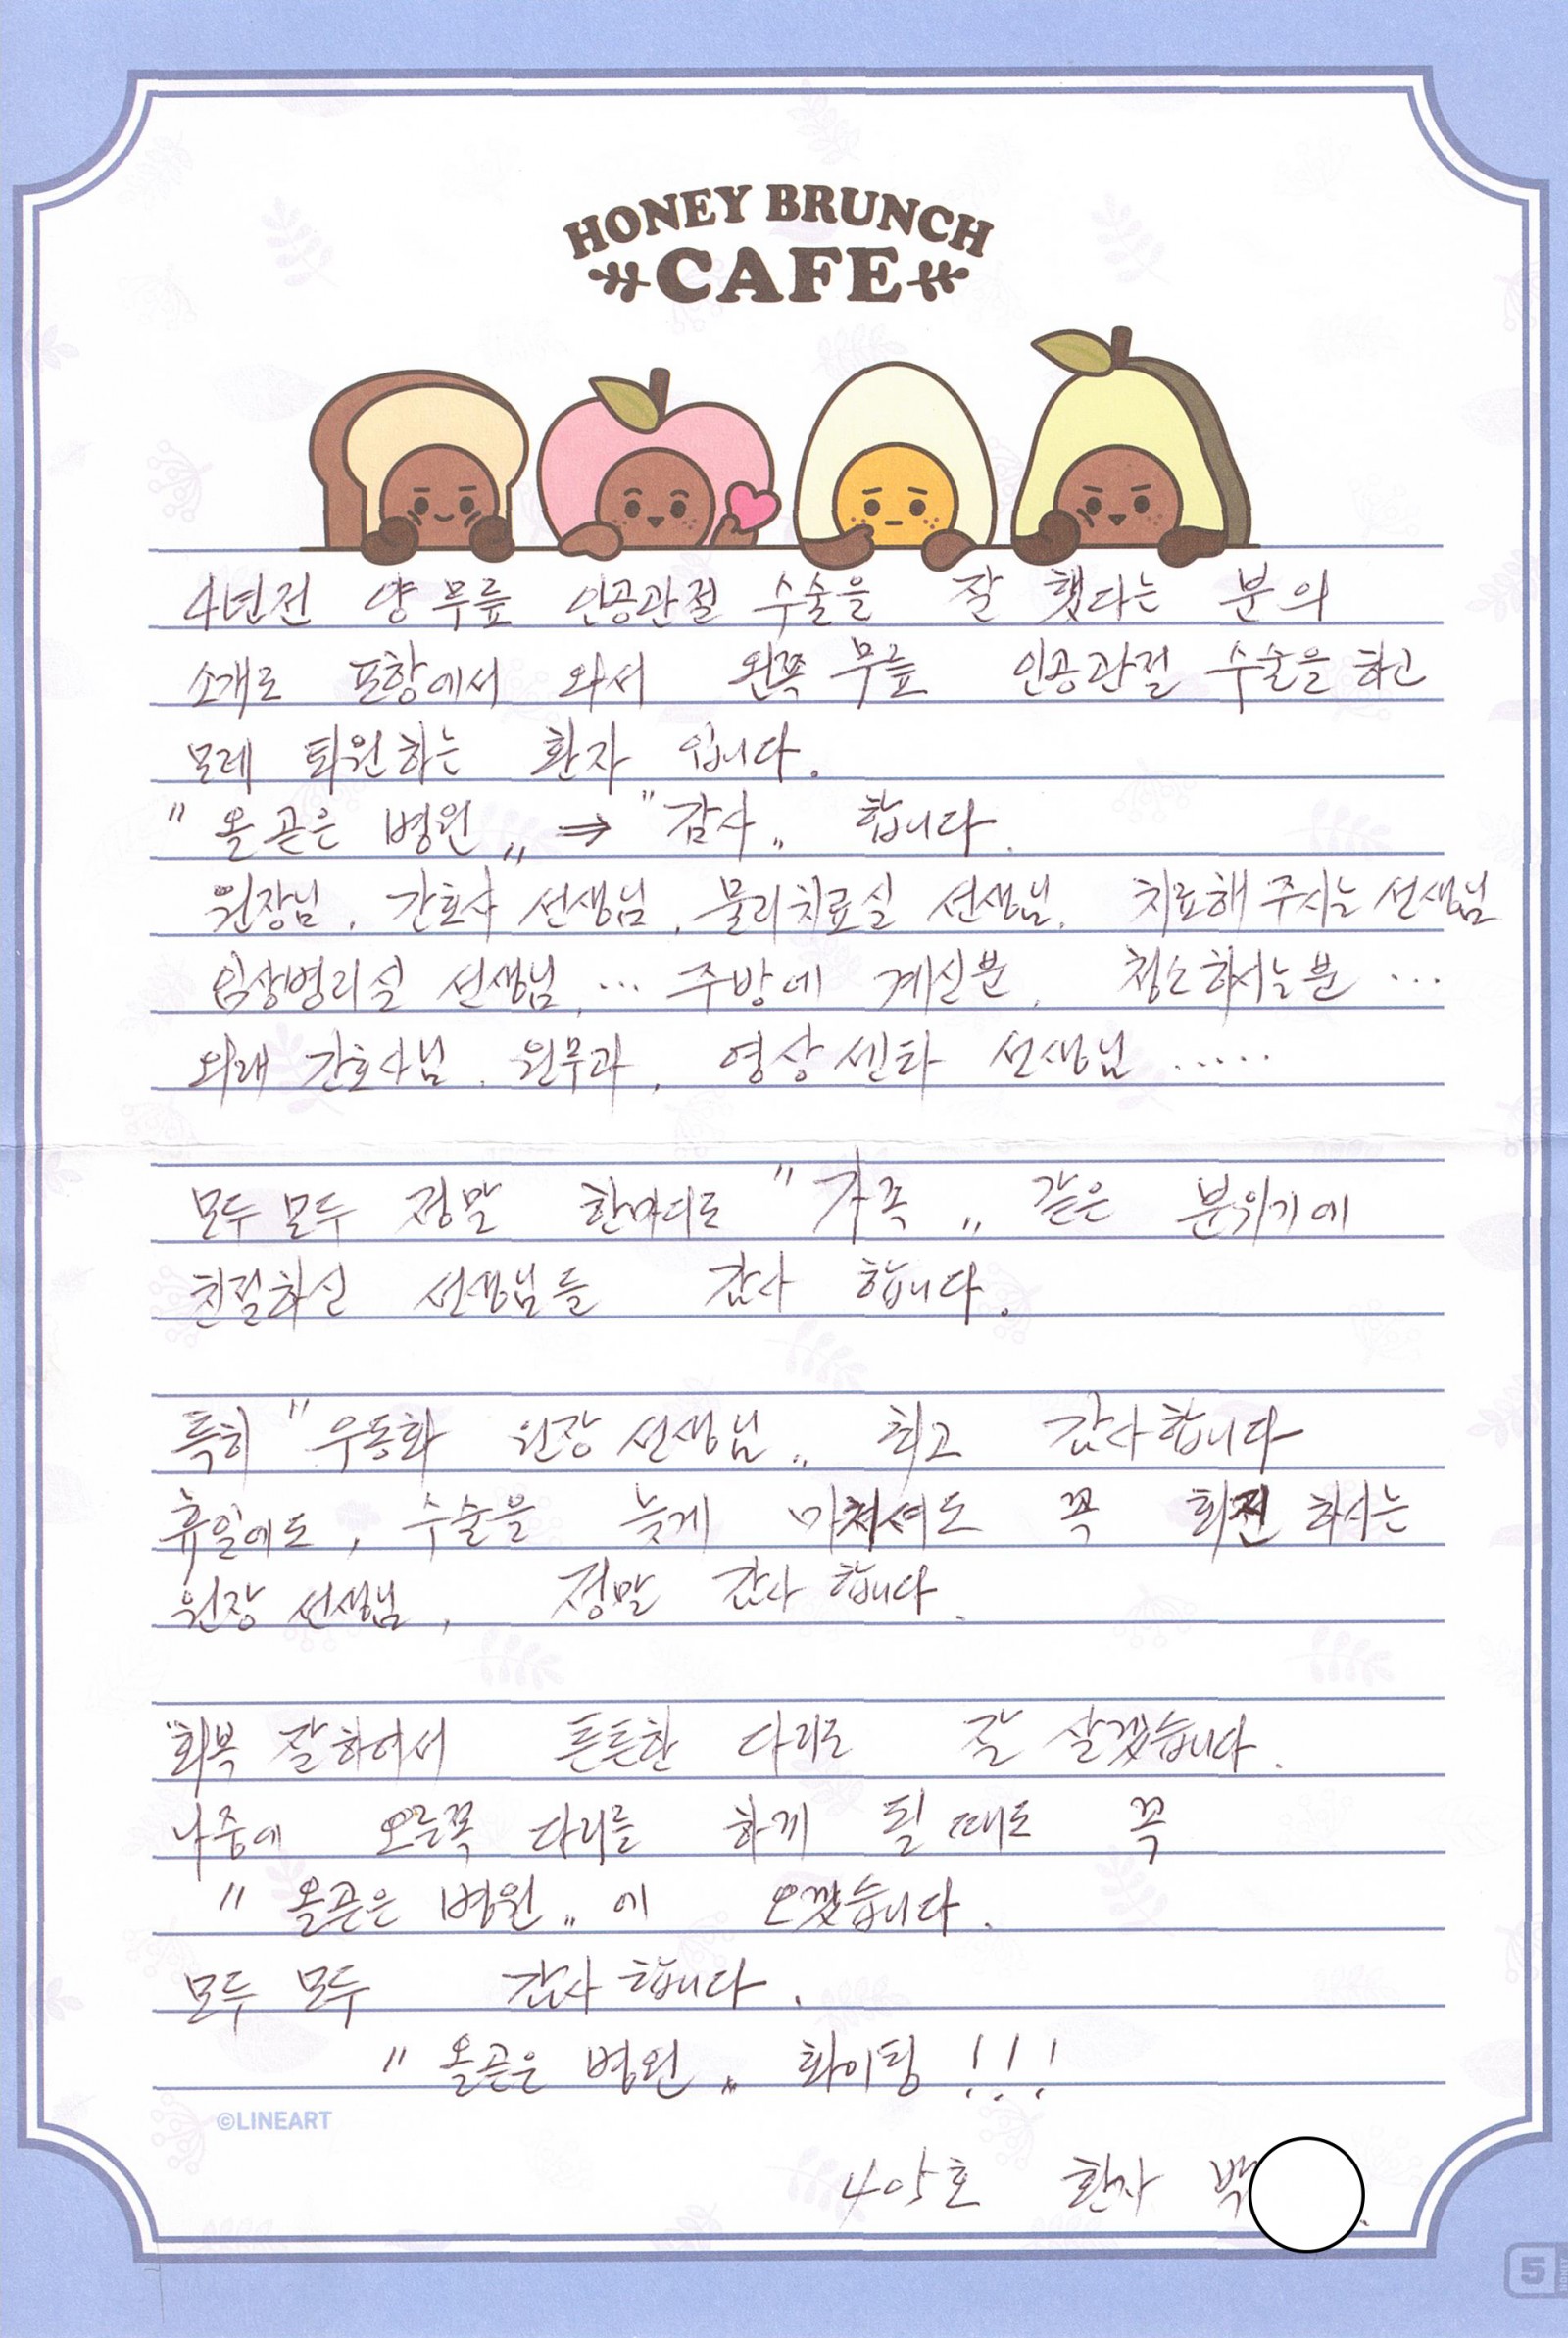 HONEY BRUNCH
CAFE
4년전 양 무릎 인공관절 수술을 잘 했다는 분의
소개로 포항에서 와서 왼쪽 무릎 인공관절 수술을 하고
모레 퇴원하는 환자 입니다.
"올곧은 병원" ⇒ "감사" 합니다.
원장님, 간호사 선생님, 물리치료실 선생님, 치료해 주시는 선생님
임상병리실 선생님, … 주방에 계신분, 청소하시는분 …
외래 간호사님, 원무과, 영상센타 선생님 .....
모두 모두 정말 한마디로 "가족" 같은 분위기에
친절하신 선생님들 감사 합니다.
특히 "우동화 원장 선생님" 최고 감사합니다
휴일에도, 수술을 늦게 마쳐셔도 꼭 회진 하시는
원장 선생님, 정말 감사 합니다.
회복 잘하여서 튼튼한 다리로 잘 살겠습니다.
나중에 오른쪽 다리를 하게 될 때도 꼭
"올곧은 병원" 에 오겠습니다.
모두 모두 감사 합니다.
"올곧은 병원" 화이팅 !!!
©LINEART
405호 환자 박
5